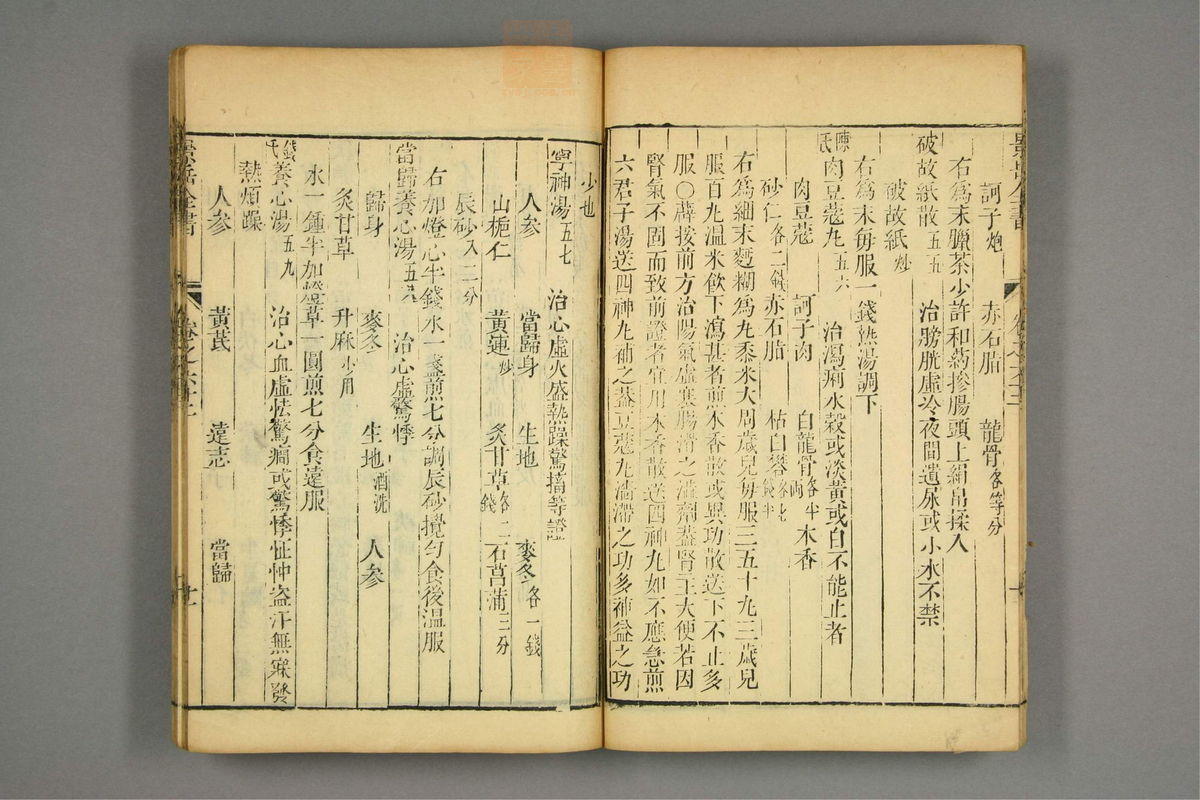 景岳全書
卷之六十二
訶子炮　赤石脂　龍骨各等分
右爲末臘茶少許和葯摻腸頭上絹帛揉入
破故紙散五五　治膀胱虛冷夜間遺尿或小水不禁
破故紙炒
右爲末每服一錢熱湯調下
陳氏肉豆蔻丸五六　治瀉痢水穀或淡黄或白不能止者
肉豆蔻　訶子肉　白龍骨各半兩　木香
砂仁各二錢　赤石脂　枯白礬各七錢半
右爲細末麪糊爲丸黍米大周歲兒每服三五十丸三歲兒
服百丸温米飲下瀉甚者煎木香散或異功散送下不止多
服〇薛按前方治陽氣虛寒腸滑之澁劑蓋腎主大便若因
腎氣不固而致前證者宜用木香散送四神丸如不應急煎
六君子湯送四神丸補之蓋豆蔻丸濇滯之功多補益之功
少也
寧神湯五七　治心虛火盛熱躁驚搐等證
人参　當歸身　生地　麥冬各一錢
山梔仁　黄連炒　炙甘草各二錢　石菖蒲三分
辰砂入二分
右加燈心半錢水一盞煎七分調辰砂攪勻食後温服
當歸養心湯五八　治心虛驚悸
歸身　麥冬　生地酒洗　人参
炙甘草　升麻少用
水一鍾半加燈草一團煎七分食遠服
錢氏養心湯五九　治心血虛怯驚癎或驚悸怔忡盗汗無寐發
熱煩躁
人参　黄芪　遠志　當歸
景岳全書